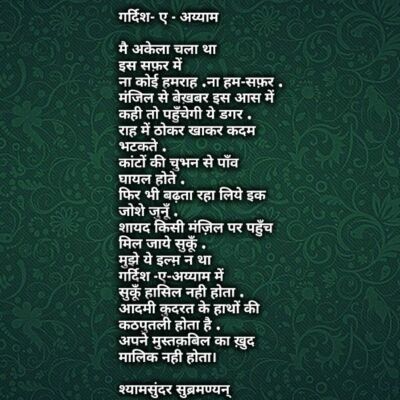 गर्दिश- ए - अय्याम
मै अकेला चला था
इस सफ़र में
ना कोई हमराह .ना हम-सफ़र .
मंजिल से बेख़बर इस आस में
कही तो पहुँचेगी ये डगर .
राह में ठोकर खाकर कदम
भटकते .
कांटों की चुभन से पाँव
घायल होते .
फिर भी बढ़ता रहा लिये इक
जोशे जुनूँ .
शायद किसी मंज़िल पर पहुँच
मिल जाये सुकूँ .
मुझे ये इल्म़ न था
गर्दिश -ए-अय्याम में
सुकूँ हासिल नही होता .
आदमी क़ुदरत के हाथों की
कठपुतली होता है .
अपने मुस्तक़बिल का ख़ुद
मालिक नही होता।
श्यामसुंदर सुब्रमण्यन्